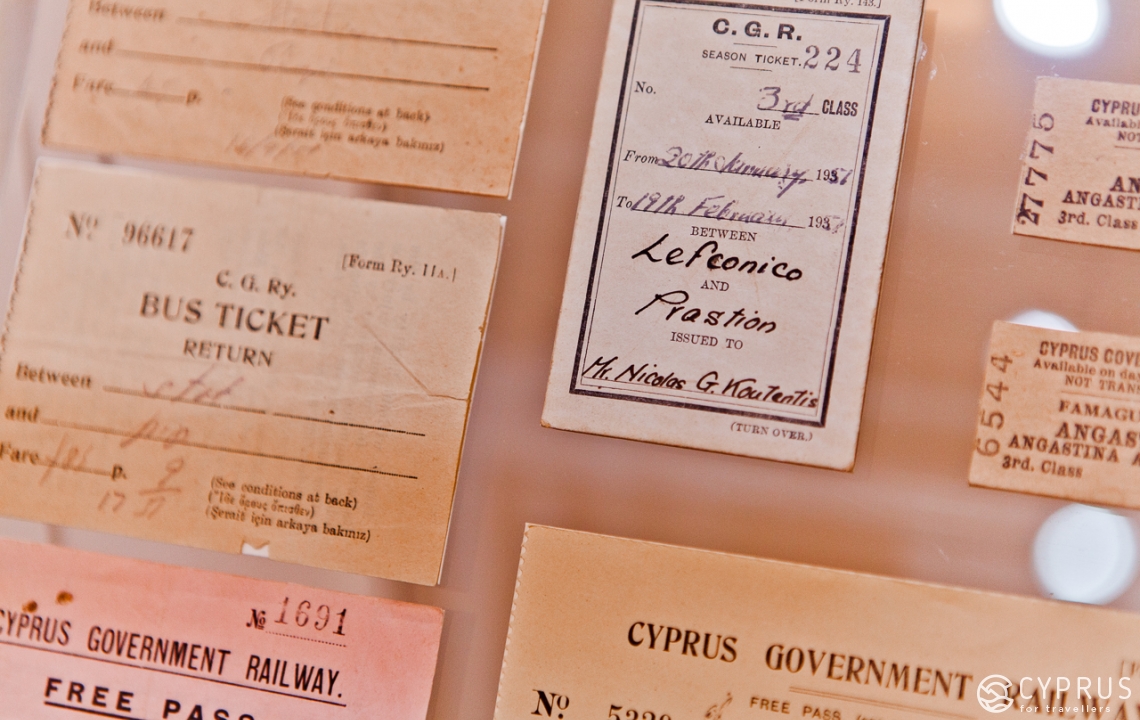 Between
and
Fare p.
(See conditions at back)
(Ἴδε ὅρους ὄπισθεν)
(Şerait için arkaya bakınız)
No 96617
[Form Ry. 11A.]
C. G. Ry.
BUS TICKET
RETURN
Between
and
Fare p.
17
(See conditions at back)
(Ἴδε ὅρους ὄπισθεν)
(Şerait için arkaya bakınız)
No 1691
CYPRUS GOVERNMENT RAILWAY.
FREE PASS
[Form Ry. 143.]
C. G. R.
SEASON TICKET. 224
No.
3rd CLASS
AVAILABLE
From 20th January 195
To 19th February 195
BETWEEN
Lefconico
AND
Prastion
ISSUED TO
Mr. Nicolas G. Koutentis
(TURN OVER.)
27775
CYPRU
Availab
NOT
AN
ANGASTIN
3rd. Class
6544
CYPRUS GOV
Available on day
NOT TRAN
FAMAGU
ANGAS
ANGASTINA A
3rd. Class
CYPRUS GOVERNMENT RAILWA
No 5320
FREE PASS
CYPRUS
for travellers